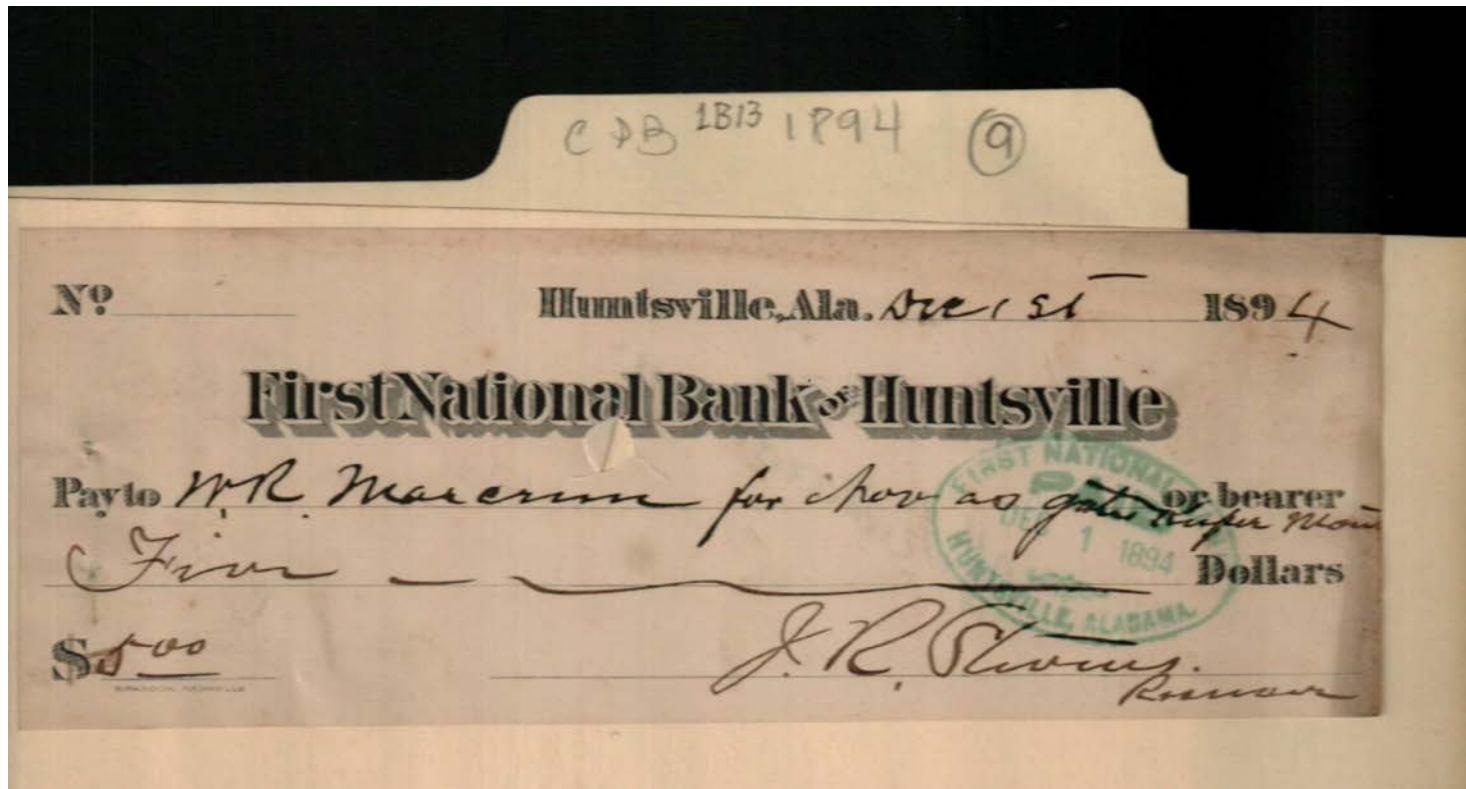 C D B 1B13 1894 9
No Huntsville, Ala. Dec 1st 1894
First National Bank of Huntsville
Pay to W.R. Marcrum for Nov as gate keeper or bearer
Five Dollars
$5 00
J. R. Stevens.
FIRST NATIONAL
PAID
DEC 1 1894
HUNTSVILLE, ALABAMA.